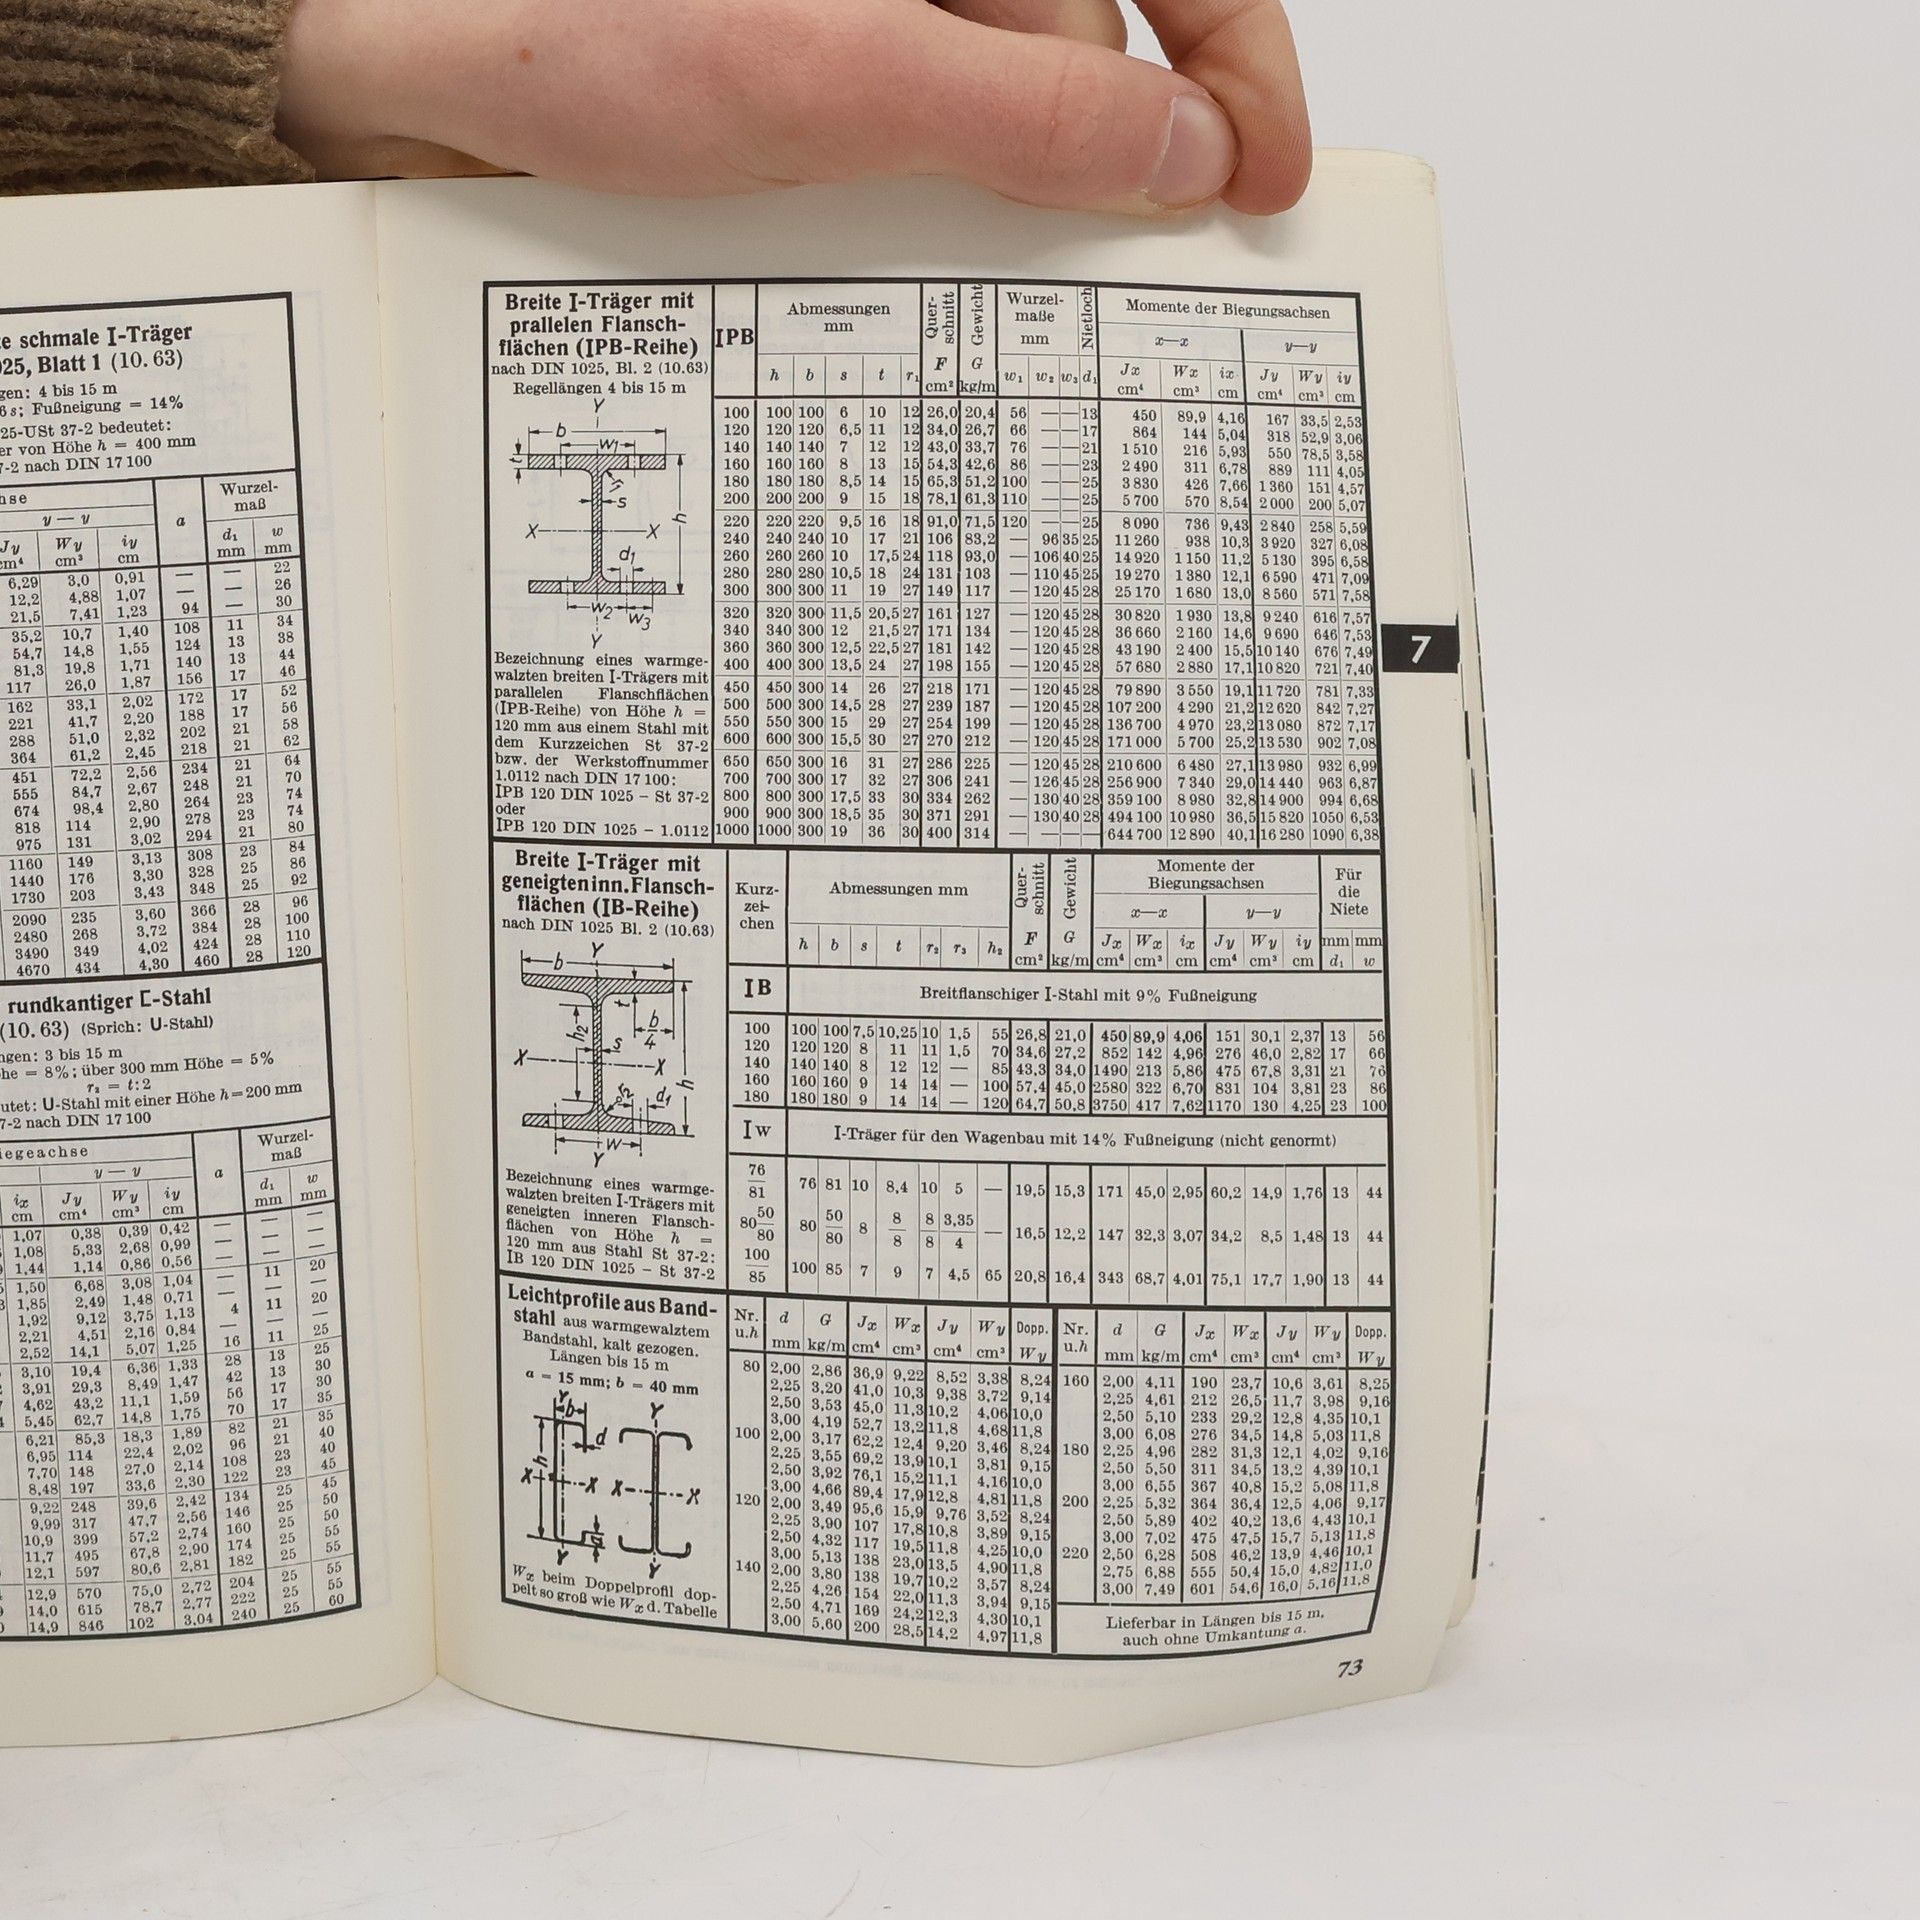 te schmale I-Träger
025, Blatt 1 (10. 63)
gen: 4 bis 15 m
6 s; Fußneigung = 14%
25-USt 37-2 bedeutet:
er von Höhe h = 400 mm
7-2 nach DIN 17 100
hse a Wurzel-
maß
y — y
Jy Wy iy d₁ w
cm⁴ cm³ cm mm mm
6,29 3,0 0,91 — — 22
12,2 4,88 1,07 — — 26
21,5 7,41 1,23 94 — 30
35,2 10,7 1,40 108 11 34
54,7 14,8 1,55 124 13 38
81,3 19,8 1,71 140 13 44
117 26,0 1,87 156 17 46
162 33,1 2,02 172 17 52
221 41,7 2,20 188 17 56
288 51,0 2,32 202 21 58
364 61,2 2,45 218 21 62
451 72,2 2,56 234 21 64
555 84,7 2,67 248 21 70
674 98,4 2,80 264 23 74
818 114 2,90 278 23 74
975 131 3,02 294 21 80
1160 149 3,13 308 23 84
1440 176 3,30 328 25 86
1730 203 3,43 348 25 92
2090 235 3,60 366 28 96
2480 268 3,72 384 28 100
3490 349 4,02 424 28 110
4670 434 4,30 460 28 120
rundkantiger [-Stahl
(10. 63) (Sprich: U-Stahl)
ngen: 3 bis 15 m
he = 8%; über 300 mm Höhe = 5%
r₂ = t:2
utet: U-Stahl mit einer Höhe h = 200 mm
7-2 nach DIN 17 100
iegeachse a Wurzel-
maß
y — y
ix Jy Wy iy d₁ w
cm cm⁴ cm³ cm mm mm
1,07 0,38 0,39 0,42 — — —
1,08 5,33 2,68 0,99 — — —
1,44 1,14 0,86 0,56 — — —
1,50 6,68 3,08 1,04 — 11 20
1,85 2,49 1,48 0,71 — — —
1,92 9,12 3,75 1,13 4 11 20
2,21 4,51 2,16 0,84 — — —
2,52 14,1 5,07 1,25 16 11 25
3,10 19,4 6,36 1,33 28 13 25
3,91 29,3 8,49 1,47 42 13 30
4,62 43,2 11,1 1,59 56 17 30
5,45 62,7 14,8 1,75 70 17 35
6,21 85,3 18,3 1,89 82 21 35
6,95 114 22,4 2,02 96 21 40
7,70 148 27,0 2,14 108 23 40
8,48 197 33,6 2,30 122 23 45
9,22 248 39,6 2,42 134 25 45
9,99 317 47,7 2,56 146 25 50
10,9 399 57,2 2,74 160 25 50
11,7 495 67,8 2,90 174 25 55
12,1 597 80,6 2,81 182 25 55
12,9 570 75,0 2,72 204 25 55
14,0 615 78,7 2,77 222 25 55
14,9 846 102 3,04 240 25 60
Breite I-Träger mit
prallelen Flansch-
flächen (IPB-Reihe)
nach DIN 1025, Bl. 2 (10.63)
Regellängen 4 bis 15 m
Y
b
w₁
t
r₁
s
h
X X
d₁
w₂ w₃
Y
Bezeichnung eines warmge-
walzten breiten I-Trägers mit
parallelen Flanschflächen
(IPB-Reihe) von Höhe h =
120 mm aus einem Stahl mit
dem Kurzzeichen St 37-2
bzw. der Werkstoffnummer
1.0112 nach DIN 17 100:
IPB 120 DIN 1025 – St 37-2
oder
IPB 120 DIN 1025 – 1.0112
IPB Abmessungen
mm Quer-
schnitt Gewicht Wurzel-
maße
mm Nietloch Momente der Biegungsachsen
x—x y—y
h b s t r₁ F G w₁ w₂ w₃ d₁ Jx Wx ix Jy Wy iy
cm² kg/m cm⁴ cm³ cm cm⁴ cm³ cm
100 100 100 6 10 12 26,0 20,4 56 — — 13 450 89,9 4,16 167 33,5 2,53
120 120 120 6,5 11 12 34,0 26,7 66 — — 17 864 144 5,04 318 52,9 3,06
140 140 140 7 12 12 43,0 33,7 76 — — 21 1 510 216 5,93 550 78,5 3,58
160 160 160 8 13 15 54,3 42,6 86 — — 23 2 490 311 6,78 889 111 4,05
180 180 180 8,5 14 15 65,3 51,2 100 — — 25 3 830 426 7,66 1 360 151 4,57
200 200 200 9 15 18 78,1 61,3 110 — — 25 5 700 570 8,54 2 000 200 5,07
220 220 220 9,5 16 18 91,0 71,5 120 — — 25 8 090 736 9,43 2 840 258 5,59
240 240 240 10 17 21 106 83,2 — 96 35 25 11 260 938 10,3 3 920 327 6,08
260 260 260 10 17,5 24 118 93,0 — 106 40 25 14 920 1 150 11,2 5 130 395 6,58
280 280 280 10,5 18 24 131 103 — 110 45 25 19 270 1 380 12,1 6 590 471 7,09
300 300 300 11 19 27 149 117 — 120 45 28 25 170 1 680 13,0 8 560 571 7,58
320 320 300 11,5 20,5 27 161 127 — 120 45 28 30 820 1 930 13,8 9 240 616 7,57
340 340 300 12 21,5 27 171 134 — 120 45 28 36 660 2 160 14,6 9 690 646 7,53
360 360 300 12,5 22,5 27 181 142 — 120 45 28 43 190 2 400 15,5 10 140 676 7,49
400 400 300 13,5 24 27 198 155 — 120 45 28 57 680 2 880 17,1 10 820 721 7,40
450 450 300 14 26 27 218 171 — 120 45 28 79 890 3 550 19,1 11 720 781 7,33
500 500 300 14,5 28 27 239 187 — 120 45 28 107 200 4 290 21,2 12 620 842 7,27
550 550 300 15 29 27 254 199 — 120 45 28 136 700 4 970 23,2 13 080 872 7,17
600 600 300 15,5 30 27 270 212 — 120 45 28 171 000 5 700 25,2 13 530 902 7,08
650 650 300 16 31 27 286 225 — 120 45 28 210 600 6 480 27,1 13 980 932 6,99
700 700 300 17 32 27 306 241 — 126 45 28 256 900 7 340 29,0 14 440 963 6,87
800 800 300 17,5 33 30 334 262 — 130 40 28 359 100 8 980 32,8 14 900 994 6,68
900 900 300 18,5 35 30 371 291 — 130 40 28 494 100 10 980 36,5 15 820 1050 6,53
1000 1000 300 19 36 30 400 314 — — — — 644 700 12 890 40,1 16 280 1090 6,38
7
Breite I-Träger mit
geneigten inn. Flansch-
flächen (IB-Reihe)
nach DIN 1025 Bl. 2 (10.63)
Y
b
t
h₂
b/4
s
X X
h
r₂ d₁
w
Y
Bezeichnung eines warmge-
walzten breiten I-Trägers mit
geneigten inneren Flansch-
flächen von Höhe h =
120 mm aus Stahl St 37-2:
IB 120 DIN 1025 – St 37-2
Kurz-
zei-
chen Abmessungen mm Quer-
schnitt Gewicht Momente der
Biegungsachsen Für
die
Niete
x—x y—y
h b s t r₂ r₃ h₂ F G Jx Wx ix Jy Wy iy mm mm
cm² kg/m cm⁴ cm³ cm cm⁴ cm³ cm d₁ w
IB Breitflanschiger I-Stahl mit 9% Fußneigung
100 100 100 7,5 10,25 10 1,5 55 26,8 21,0 450 89,9 4,06 151 30,1 2,37 13 56
120 120 120 8 11 11 1,5 70 34,6 27,2 852 142 4,96 276 46,0 2,82 17 66
140 140 140 8 12 12 — 85 43,3 34,0 1490 213 5,86 475 67,8 3,31 21 76
160 160 160 9 14 14 — 100 57,4 45,0 2580 322 6,70 831 104 3,81 23 86
180 180 180 9 14 14 — 120 64,7 50,8 3750 417 7,62 1170 130 4,25 23 100
Iw I-Träger für den Wagenbau mit 14% Fußneigung (nicht genormt)
76/81 76 81 10 8,4 10 5 — 19,5 15,3 171 45,0 2,95 60,2 14,9 1,76 13 44
80 50/80 80 50/80 8 8/8 8/8 3,35/4 — 16,5 12,2 147 32,3 3,07 34,2 8,5 1,48 13 44
100/85 100 85 7 9 7 4,5 65 20,8 16,4 343 68,7 4,01 75,1 17,7 1,90 13 44
Leichtprofile aus Band-
stahl aus warmgewalztem
Bandstahl, kalt gezogen.
Längen bis 15 m
a = 15 mm; b = 40 mm
Y
b
d
h
X X X X
a
Y Y
Wx beim Doppelprofil dop-
pelt so groß wie Wx d. Tabelle
Nr. u. h d G Jx Wx Jy Wy Dopp. Wy
mm kg/m cm⁴ cm³ cm⁴ cm³
80 2,00 2,86 36,9 9,22 8,52 3,38 8,24
2,25 3,20 41,0 10,3 9,38 3,72 9,14
2,50 3,53 45,0 11,3 10,2 4,06 10,0
3,00 4,19 52,7 13,2 11,8 4,68 11,8
100 2,00 3,17 62,2 12,4 9,20 3,46 8,24
2,25 3,55 69,2 13,9 10,1 3,81 9,15
2,50 3,92 76,1 15,2 11,1 4,16 10,0
3,00 4,66 89,4 17,9 12,8 4,81 11,8
120 2,00 3,49 95,6 15,9 9,76 3,52 8,24
2,25 3,90 107 17,8 10,8 3,89 9,15
2,50 4,32 117 19,5 11,8 4,25 10,0
3,00 5,13 138 23,0 13,5 4,90 11,8
140 2,00 3,80 138 19,7 10,2 3,57 8,24
2,25 4,26 154 22,0 11,3 3,94 9,15
2,50 4,71 169 24,2 12,3 4,30 10,1
3,00 5,60 200 28,5 14,2 4,97 11,8
Nr. u. h d G Jx Wx Jy Wy Dopp. Wy
mm kg/m cm⁴ cm³ cm⁴ cm³
160 2,00 4,11 190 23,7 10,6 3,61 8,25
2,25 4,61 212 26,5 11,7 3,98 9,16
2,50 5,10 233 29,2 12,8 4,35 10,1
3,00 6,08 276 34,5 14,8 5,03 11,8
180 2,25 4,96 282 31,3 12,1 4,02 9,16
2,50 5,50 311 34,5 13,2 4,39 10,1
3,00 6,55 367 40,8 15,2 5,08 11,8
200 2,25 5,32 364 36,4 12,5 4,06 9,17
2,50 5,89 402 40,2 13,6 4,43 10,1
3,00 7,02 475 47,5 15,7 5,13 11,8
220 2,50 6,28 508 46,2 13,9 4,46 10,1
2,75 6,88 555 50,4 15,0 4,82 11,0
3,00 7,49 601 54,6 16,0 5,16 11,8
Lieferbar in Längen bis 15 m,
auch ohne Umkantung a.
73